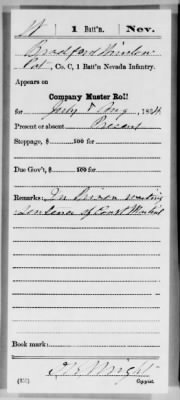 W | 1 Batt'n. | Nev.
Bradford Winslow
Pvt, Co. C, 1 Batt'n Nevada Infantry.
Appears on
Company Muster Roll
for July & Aug, 1864.
Present or absent Present
Stoppage, $ 100 for
Due Gov't, $ 100 for
Remarks: In Prison waiting
sentence of Court Martial
Book mark:
Wright
(358) Copyist.